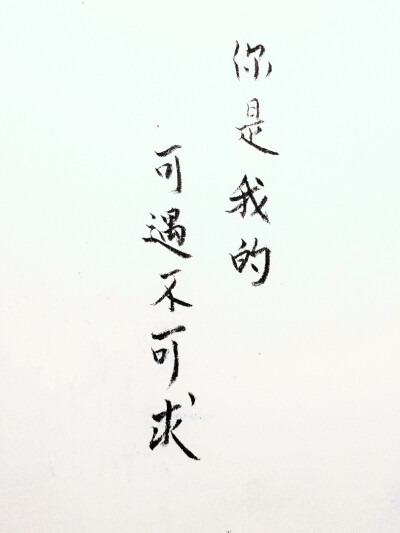 你是我的
可遇不可求